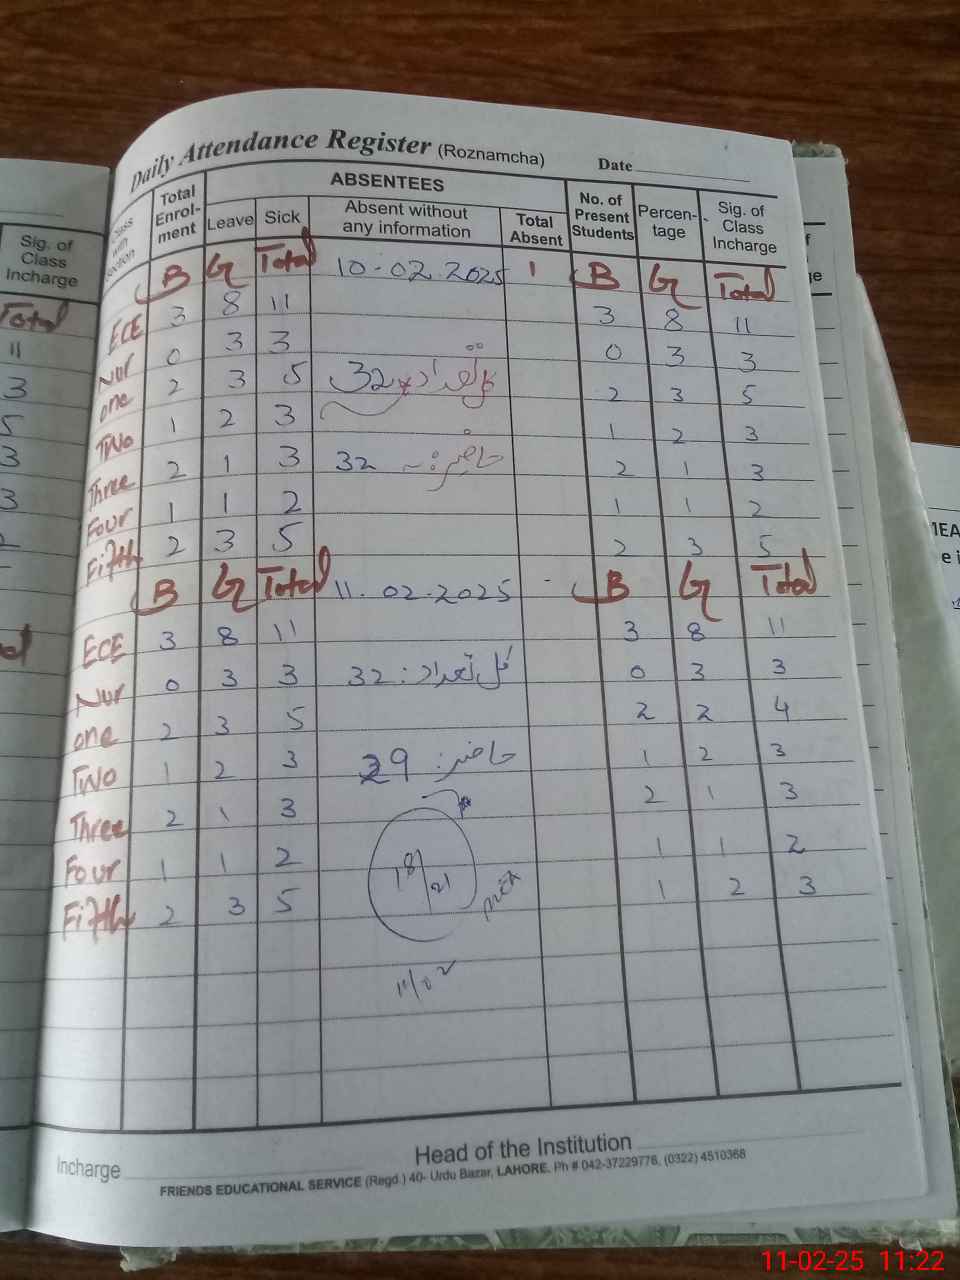 Daily Attendance Register (Roznamcha) Date
Class with Section
Total Enrol- ment
ABSENTEES
Leave Sick Absent without any information Total Absent
No. of Present Students
Percen- tage
Sig. of Class Incharge
B G Total 10-02-2025 1 B G Total
ECE 3 8 11 3 8 11
Nur 0 3 3 0 3 3
one 2 3 5 کل تعداد 32 2 3 5
Two 1 2 3 1 2 3
Three 2 1 3 حاضر: 32 2 1 3
Four 1 1 2 1 1 2
Fifth 2 3 5 2 3 5
B G Total 11-02-2025 B G Total
ECE 3 8 11 3 8 11
Nur 0 3 3 کل تعداد: 32 0 3 3
one 2 3 5 2 2 4
Two 1 2 3 حاضر: 29 1 2 3
Three 2 1 3 2 1 3
Four 1 1 2 18/21 1 1 2
Fifth 2 3 5 1 2 3
11/02
Incharge Head of the Institution
FRIENDS EDUCATIONAL SERVICE (Regd.) 40- Urdu Bazar, LAHORE. Ph # 042-37229778, (0322) 4510368
Sig. of Class Incharge
Total
11
3
5
3
3
11-02-25 11:22